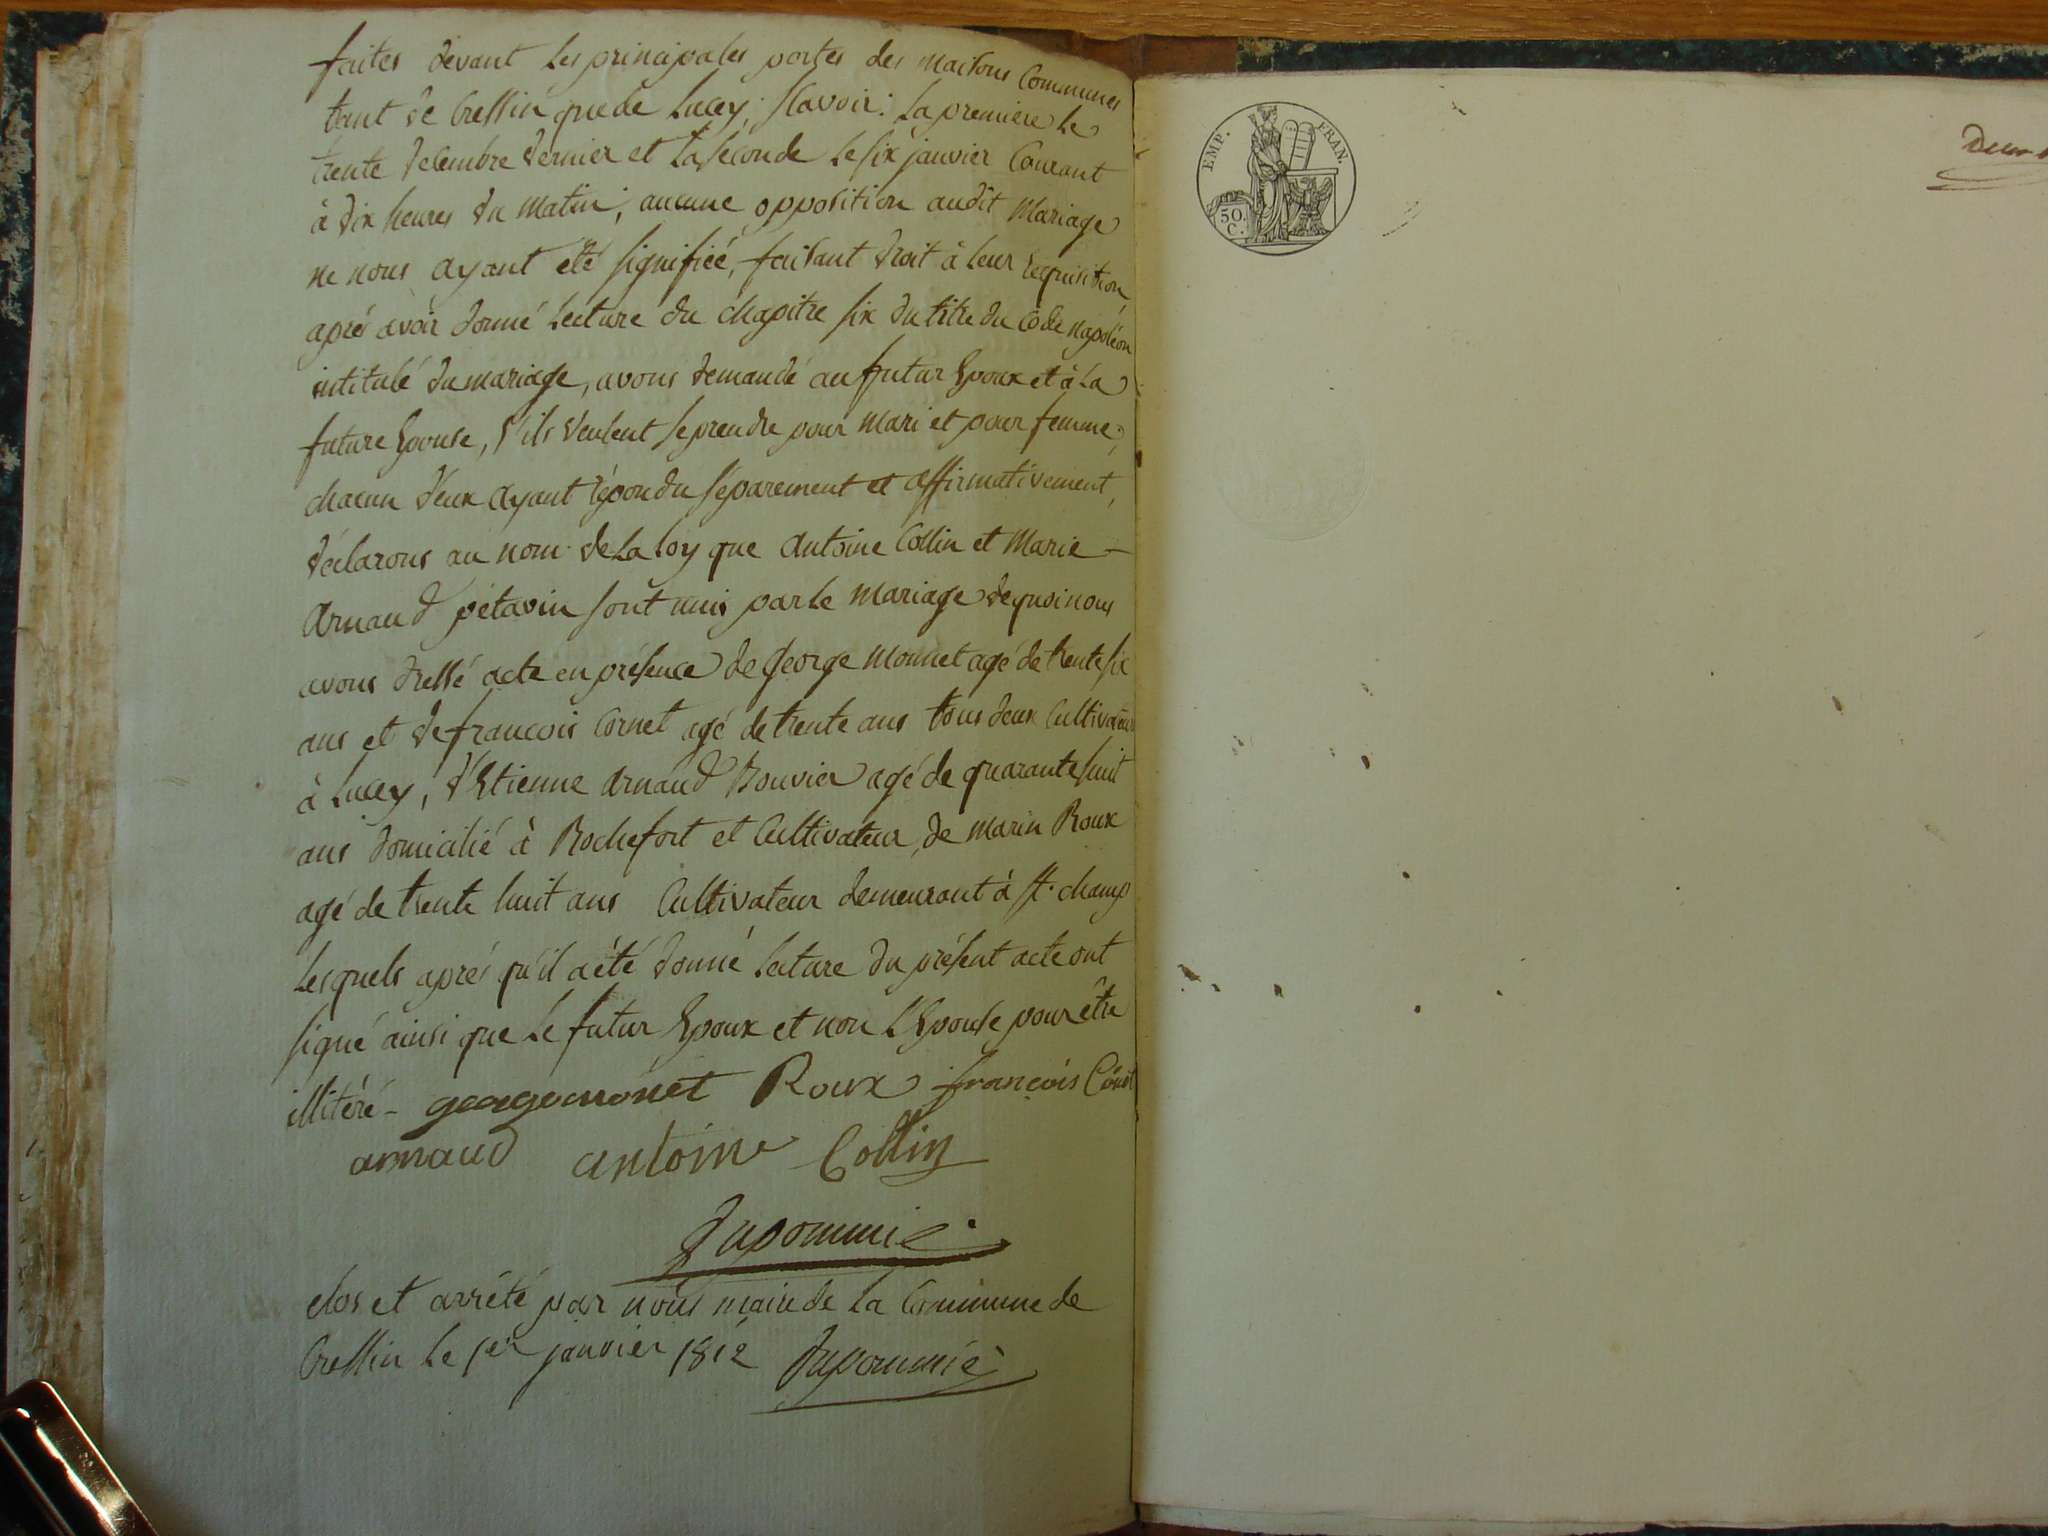 faites devant les principales portes des maisons Communes
tant de Cressin que de Lucey, sçavoir: la premiere le
trente decembre dernier et la seconde le six janvier Courant
à dix heures du matin, aucune opposition audit mariage
ne nous ayant été signifiée, faisant droit à leur requisition,
après avoir donné lecture du chapitre six du titre du Code napoléon
intitulé du mariage, avons demandé au futur Epoux et à la
future Epouse, s'ils veulent se prendre pour mari et pour femme,
chacun d'eux ayant répondu séparement et affirmativement,
déclarons au nom de la loy que Antoine Collin et Marie
Arnaud pétavin sont unis par le mariage de quoi nous
avons dressé acte en présence de George Monnet agé de trente six
ans et de françois Cornet agé de trente ans tous deux Cultivateurs
à Lucey, d'Etienne Arnaud Bouvier agé de quarante huit
ans domicilié à Rochefort et Cultivateur, de marin Roux
agé de trente huit ans Cultivateur demeurant à St. champ
Lesquels après qu'il a été donné lecture du présent acte ont
signé ainsi que le futur Epoux et non l'Epouse pour être
illitéré - george monet Roux françois
arnaud antoine Collin
Dupommié
clos et arrêté par nous maire de la Commune de
Cressin le 1er janvier 1812 Dupommié
EMP. FRAN.
50.
C.